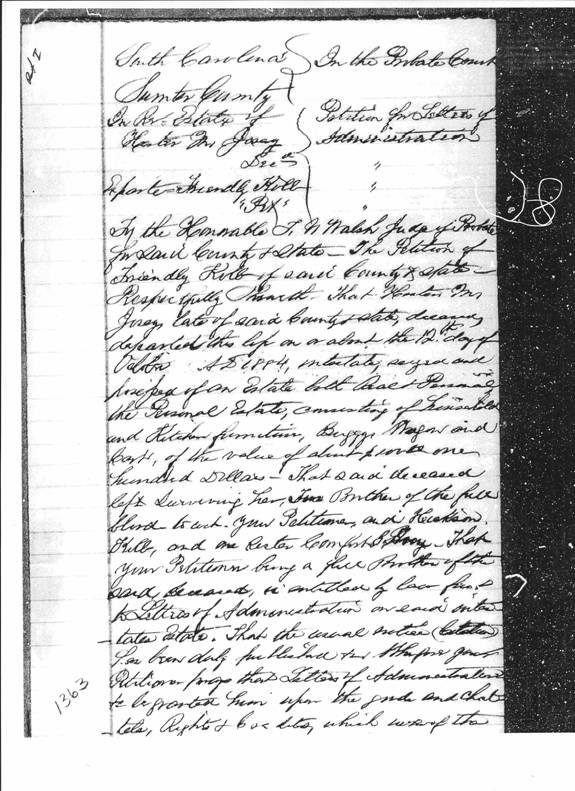 South Carolina In the Probate Court
Sumter County
In Re. Estate of Petition for Letters of
Hester M Josey Administration
Decd "
Exparte = Friendly Kolb "
"Pet" "
To the Honorable T. V. Walsh Judge of Probate
for said County & State — The Petition of
Friendly Kolb of said County & State —
Respectfully Sheweth. That Hester M
Josey late of said County & State, deceased,
departed this life on or about the 12th day of
October AD 1884, intestate, seized and
possessed of an Estate both Real & Personal
the Personal Estate, consisting of household
and Kitchen furniture, Buggy Wagon and
Cart, of the value of about one
hundred Dollars — That said deceased
left surviving her, Two Brother of the full
blood to wit. Your Petitioner, and
Kolb, and one sister Comfort — That
your Petitioner being a full Brother of the
said, deceased, is entitled by law first
to Letters of Administration on said intes
-tates Estate. That the usual notice (Citation
has been duly published & Wherefore your
Petitioner prays that Letters of Administration
to be granted him upon the goods and chat
-tels, Rights & Credits, which were of the
1363